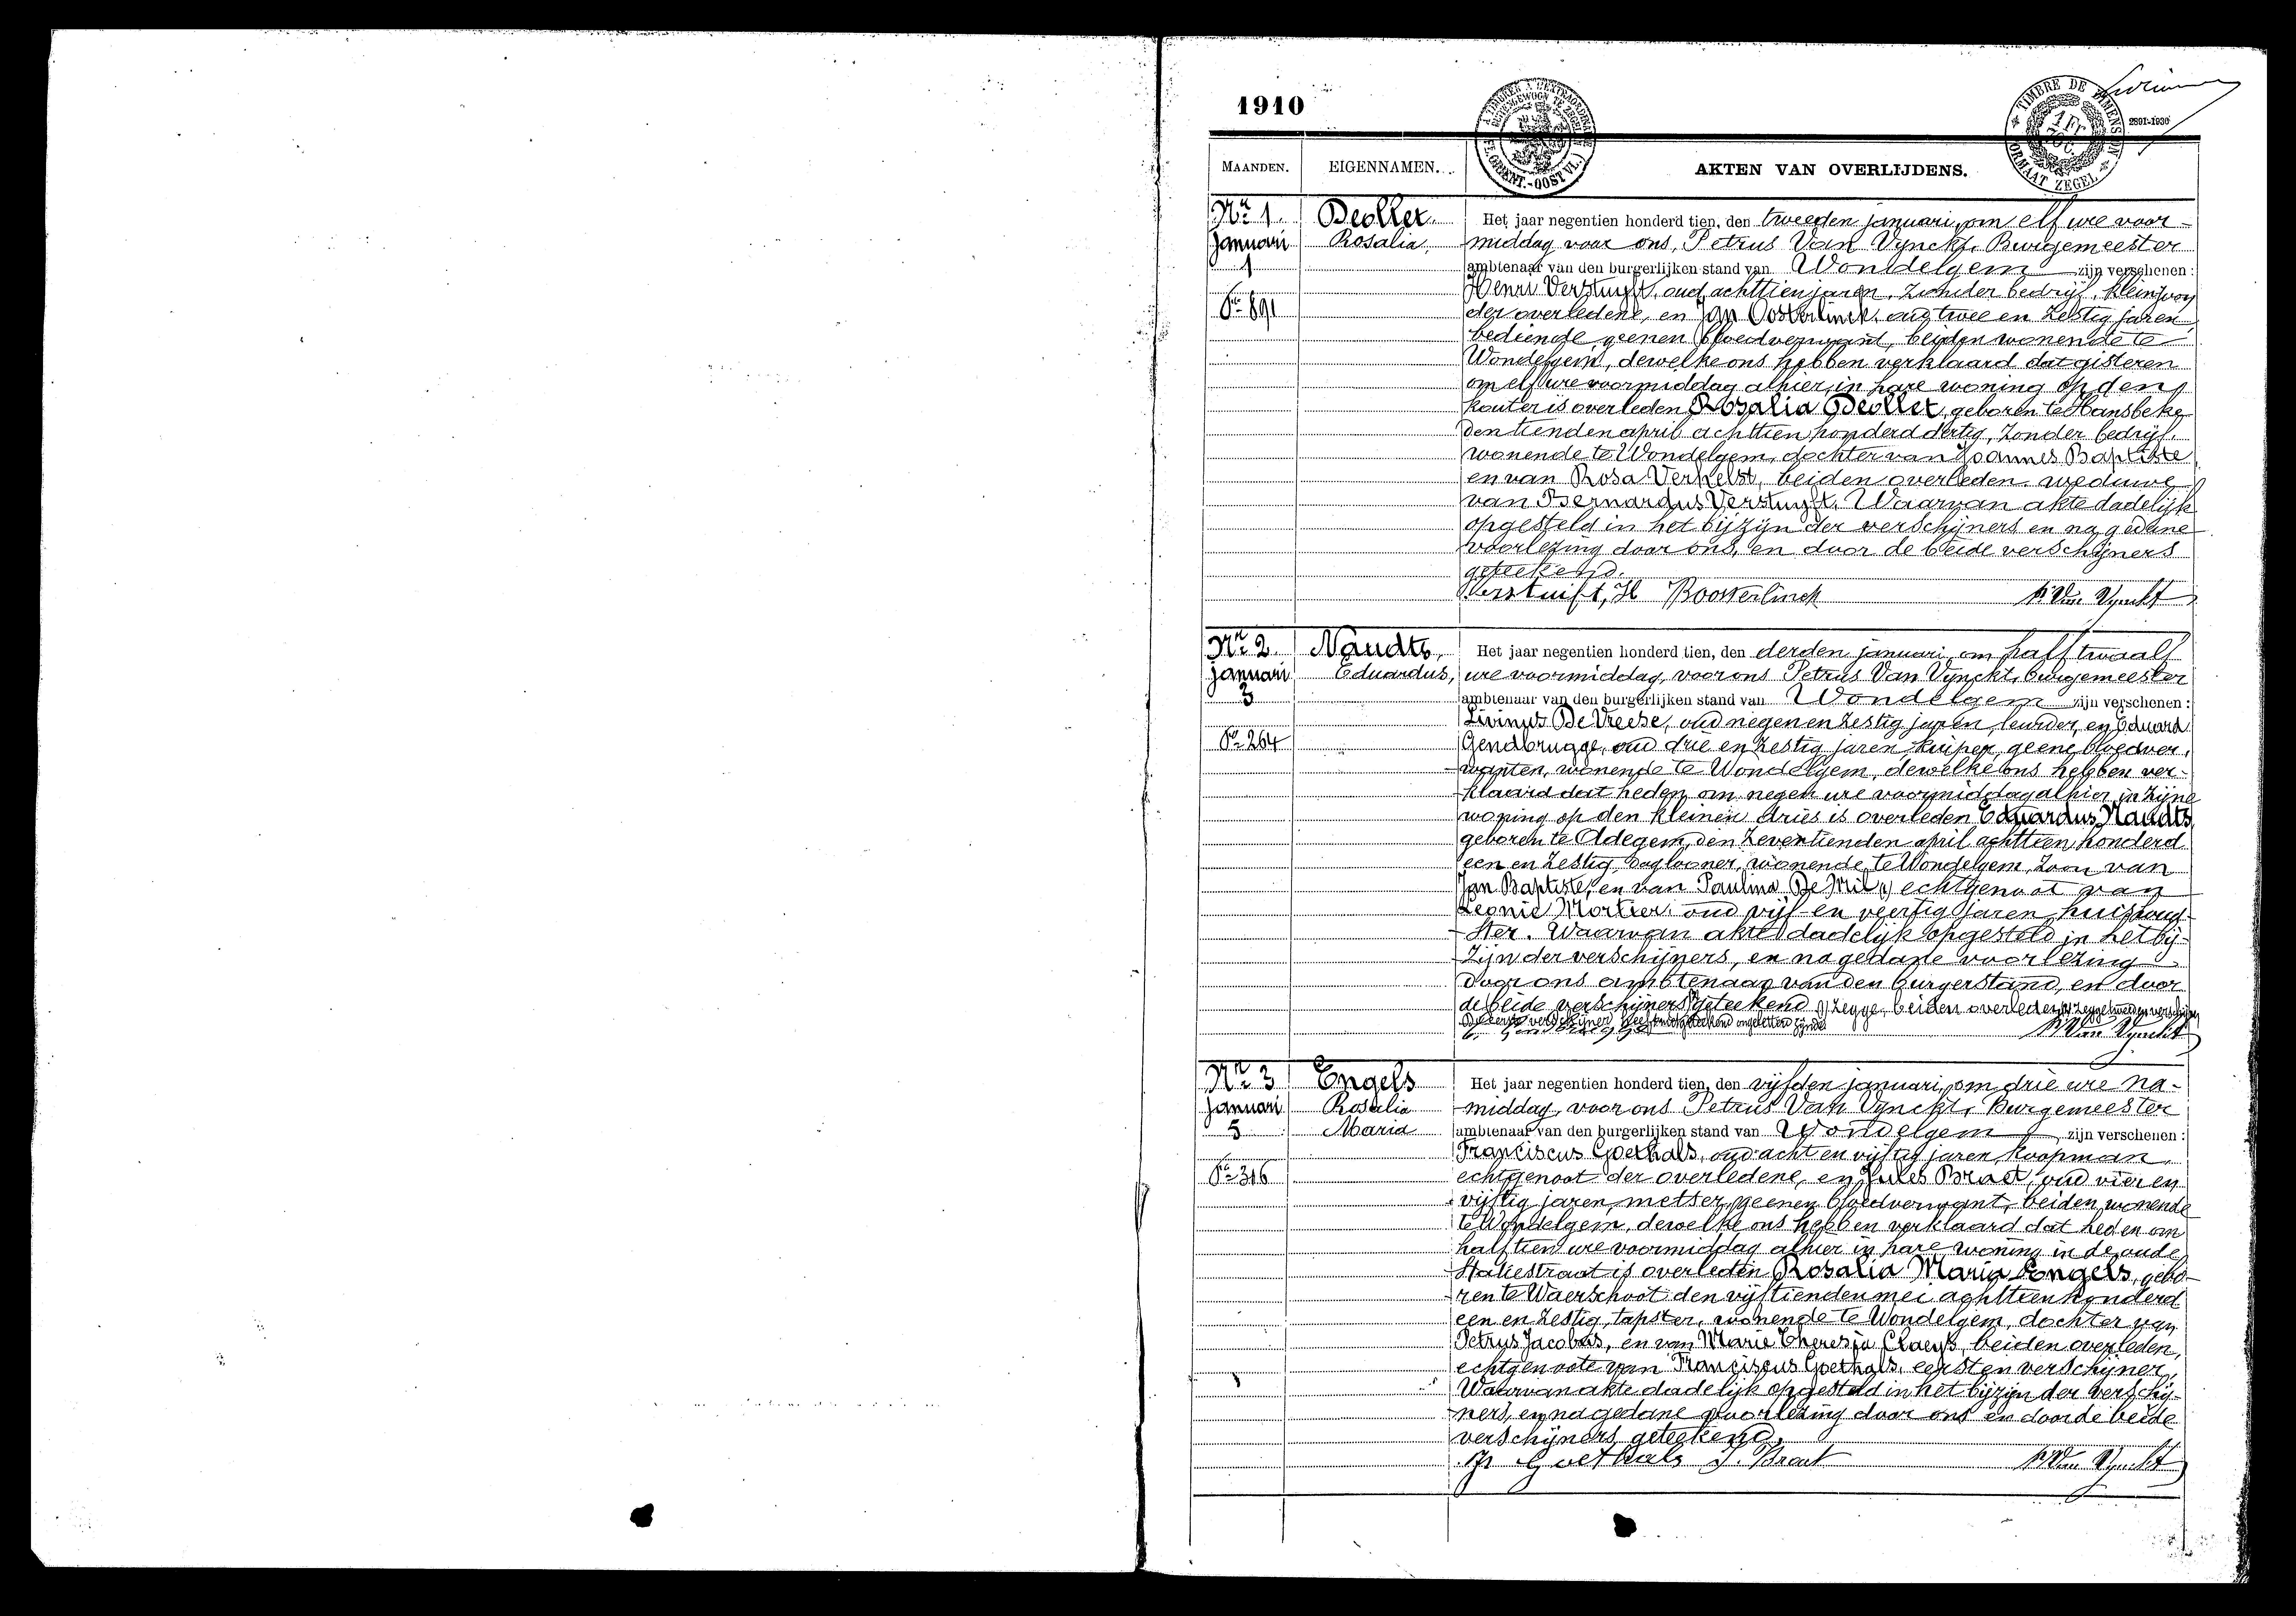 1910
A TIMBRER A L'EXTRAORDINAIRE
BUITENGEWOON TE ZEGELEN
(FL. ORIENT.-OOST VL.)
TIMBRE DE DIMENSION
FORMAAT ZEGEL
1 Fr
2891-1930
MAANDEN. EIGENNAMEN. AKTEN VAN OVERLIJDENS.
Nr 1. Deollet. Het jaar negentien honderd tien, den tweeden januari, om elf ure voor-
Januari Rosalia, middag voor ons, Petrus Van Vynckt, Burgemeester
1 ambtenaar van den burgerlijken stand van Wondelgem zijn verschenen:
Henri Verstuyft, oud achttien jaren, zonder bedrijf, kleinzoon
891 der overledene, en Jan Oosterlinck, oud twee en zestig jaren,
bediende geenen bloedverwant, beiden wonende te
Wondelgem, dewelke ons hebben verklaard dat gisteren
om elf ure voormiddag alhier in hare woning op den
kouter is overleden Rosalia Deollet, geboren te Hansbeke
den tienden april achttien honderd dertig, zonder bedrijf,
wonende te Wondelgem, dochter van Joannes Baptiste,
en van Rosa Verhelst, beiden overleden, weduwe
van Bernardus Verstuyft. Waarvan akte dadelijk
opgesteld in het bijzijn der verschijners en na gedane
voorlezing door ons, en door de beide verschijners
geteekend.
Verstuift, H Boosterlinck P. Van Vynckt
Nr 2 Naudts, Het jaar negentien honderd tien, den derden januari, om half twaalf
januari Eduardus, ure voormiddag, voor ons Petrus Van Vynckt, burgemeester
3 ambtenaar van den burgerlijken stand van Wondelgem zijn verschenen:
Livinus De Vreese, oud negen en zestig jaren, leurder, en Eduard
264 Gendbrugge, oud drie en zestig jaren kuiper, geene bloedver-
wanten, wonende te Wondelgem, dewelke ons hebben ver-
klaard dat heden om negen ure voormiddag alhier in zijne
woning op den kleinen dries is overleden Eduardus Naudts,
geboren te Adegem, den zeventienden april achttien honderd
een en zestig, daglooner, wonende te Wondelgem, zoon van
Jan Baptiste, en van Paulina De Mil, echtgenoot van
Leonie Mortier, oud vijf en veertig jaren, huishoud-
ster. Waarvan akte dadelijk opgesteld in het bij-
zijn der verschijners, en na gedane voorlezing
door ons ambtenaar van den burgerstand, en door
de beide verschijners geteekend zegge beiden overleden zegge tweeden verschijner
De eerste verschijner heeft niet geteekend ongeletterd zijnde
P. Van Vynckt
Nr 3 Engels Het jaar negentien honderd tien, den vijfden januari, om drie ure na-
januari Rosalia middag, voor ons Petrus Van Vynckt, Burgemeester
5 Maria ambtenaar van den burgerlijken stand van Wondelgem, zijn verschenen:
Franciscus Goethals, oud acht en vijftig jaren, koopman,
316 echtgenoot der overledene, en Jules Braet, oud vier en
vijftig jaren, metser, geenen bloedverwant, beiden wonende
te Wondelgem, dewelke ons hebben verklaard dat heden om
half tien ure voormiddag alhier in hare woning in de oude
Statiestraat is overleden Rosalia Maria Engels, gebo-
ren te Waerschoot den vijftienden mei achttien honderd
een en zestig, tapster, wonende te Wondelgem, dochter van
Petrus Jacobus, en van Marie Theresia Claeys, beiden overleden,
echtgenoote van Franciscus Goethals, eersten verschijner,
Waarvan akte dadelijk opgesteld in het bijzijn der verschij-
ners, en na gedane voorlezing door ons en door de beide
verschijners geteekend.
Fr Goethals J. Braet P. Van Vynckt